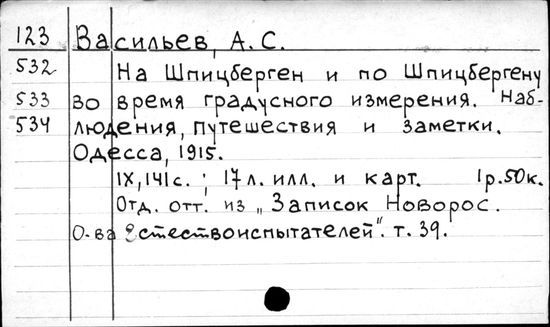 123 Васильев, А. С.
532 На Шпицберген и по Шпицбергену
533 во время градусного измерения. Наб-
534 людения, путешествия и заметки.
Одесса, 1915.
IX, 141 с.; 17 л. илл. и карт. 1 р. 50 к.
Отд. отт. из „Записок Новорос.
О-ва Естествоиспытателей". т. 39.